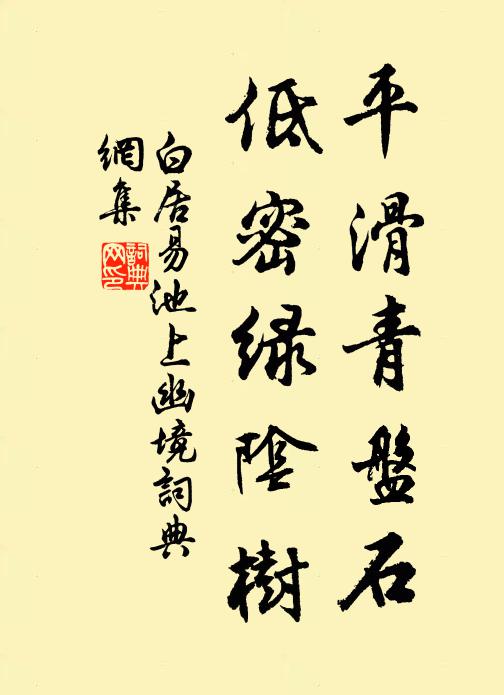 平滑青盤石
低密綠陰樹
白居易池上幽境詞典
網集
詞典网印